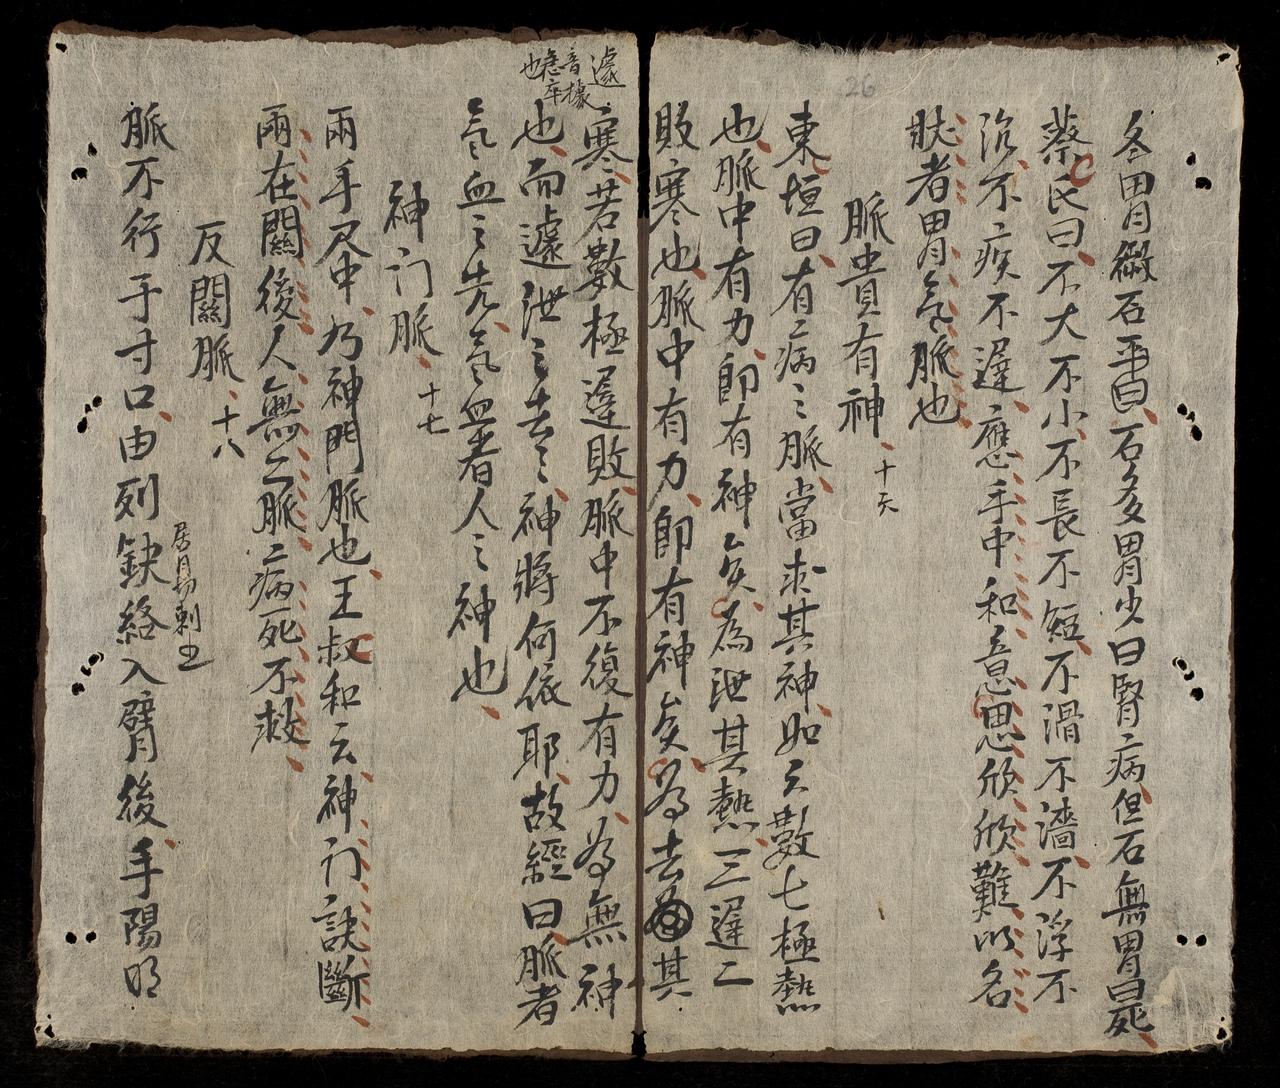 26
冬胃微石平曰、石多胃少曰腎病、但石無胃曰死、
蔡氏曰、不大不小、不長不短、不滑不濇、不浮不
沉、不疾不遲、應手中和、意思欣欣、難以名
狀者、胃氣脈也
脈貴有神、十六
東垣曰、有病之脈、當求其神、如云數七極熱
也、脈中有力、即有神矣、為泄其熱、三遲二
敗寒也、脈中有力、即有神矣、為去其
寒、若數極遲敗、脈中不復有力、為無神
也、而遽泄之去之、神將何依耶、故經曰脈者
氣血之先、氣血者人之神也、
遽音據急卒也
神门脈、十七
兩手尺中、乃神門脈也、王叔和云、神门訣斷、
兩在關後、人無二脈、病死不救、
反關脈、十八
脈不行于寸口、由列缺絡入臂後手陽明